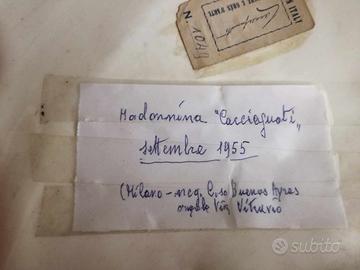 N 1049
Madonnina "Cacciaguoti"
settembre 1955
(Milano - neg. C.so Buenos Ayres
angolo Via Vitruvio
subito